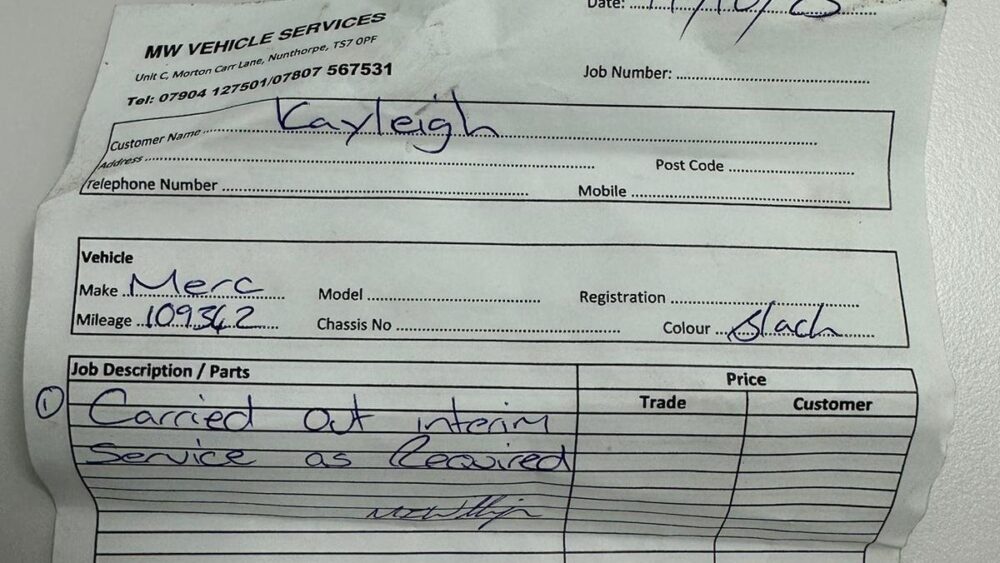 Date:
MW VEHICLE SERVICES
Unit C, Morton Carr Lane, Nunthorpe, TS7 0PF
Tel: 07904 127501/07807 567531
Job Number:
Customer Name Kayleigh
Address
Post Code
Telephone Number
Mobile
Vehicle
Make Merc
Model
Registration
Mileage 109342
Chassis No
Colour Black
Job Description / Parts
Price
Trade
Customer
① Carried Out interim
Service as Required